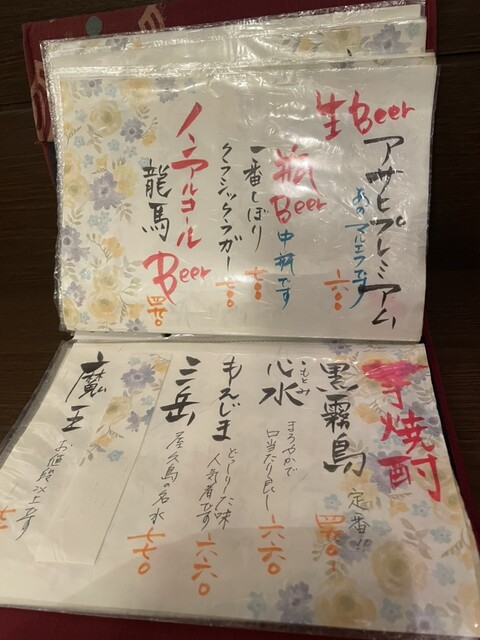 生Beer
アサヒプレミアム
あのマルエフです
六〇〇
瓶Beer
中瓶です
一番しぼり
クラシックラガー
七〇〇
七〇〇
ノンアルコールBeer
龍馬
四五〇
芋焼酎
黒霧島
定番!!
心水
もとみ
まろやかで
口当たり良し
六六〇
もえじま
どっしりした味
人気者です
六六〇
三岳
屋久島の名水
七七〇
魔王
お値段以上です